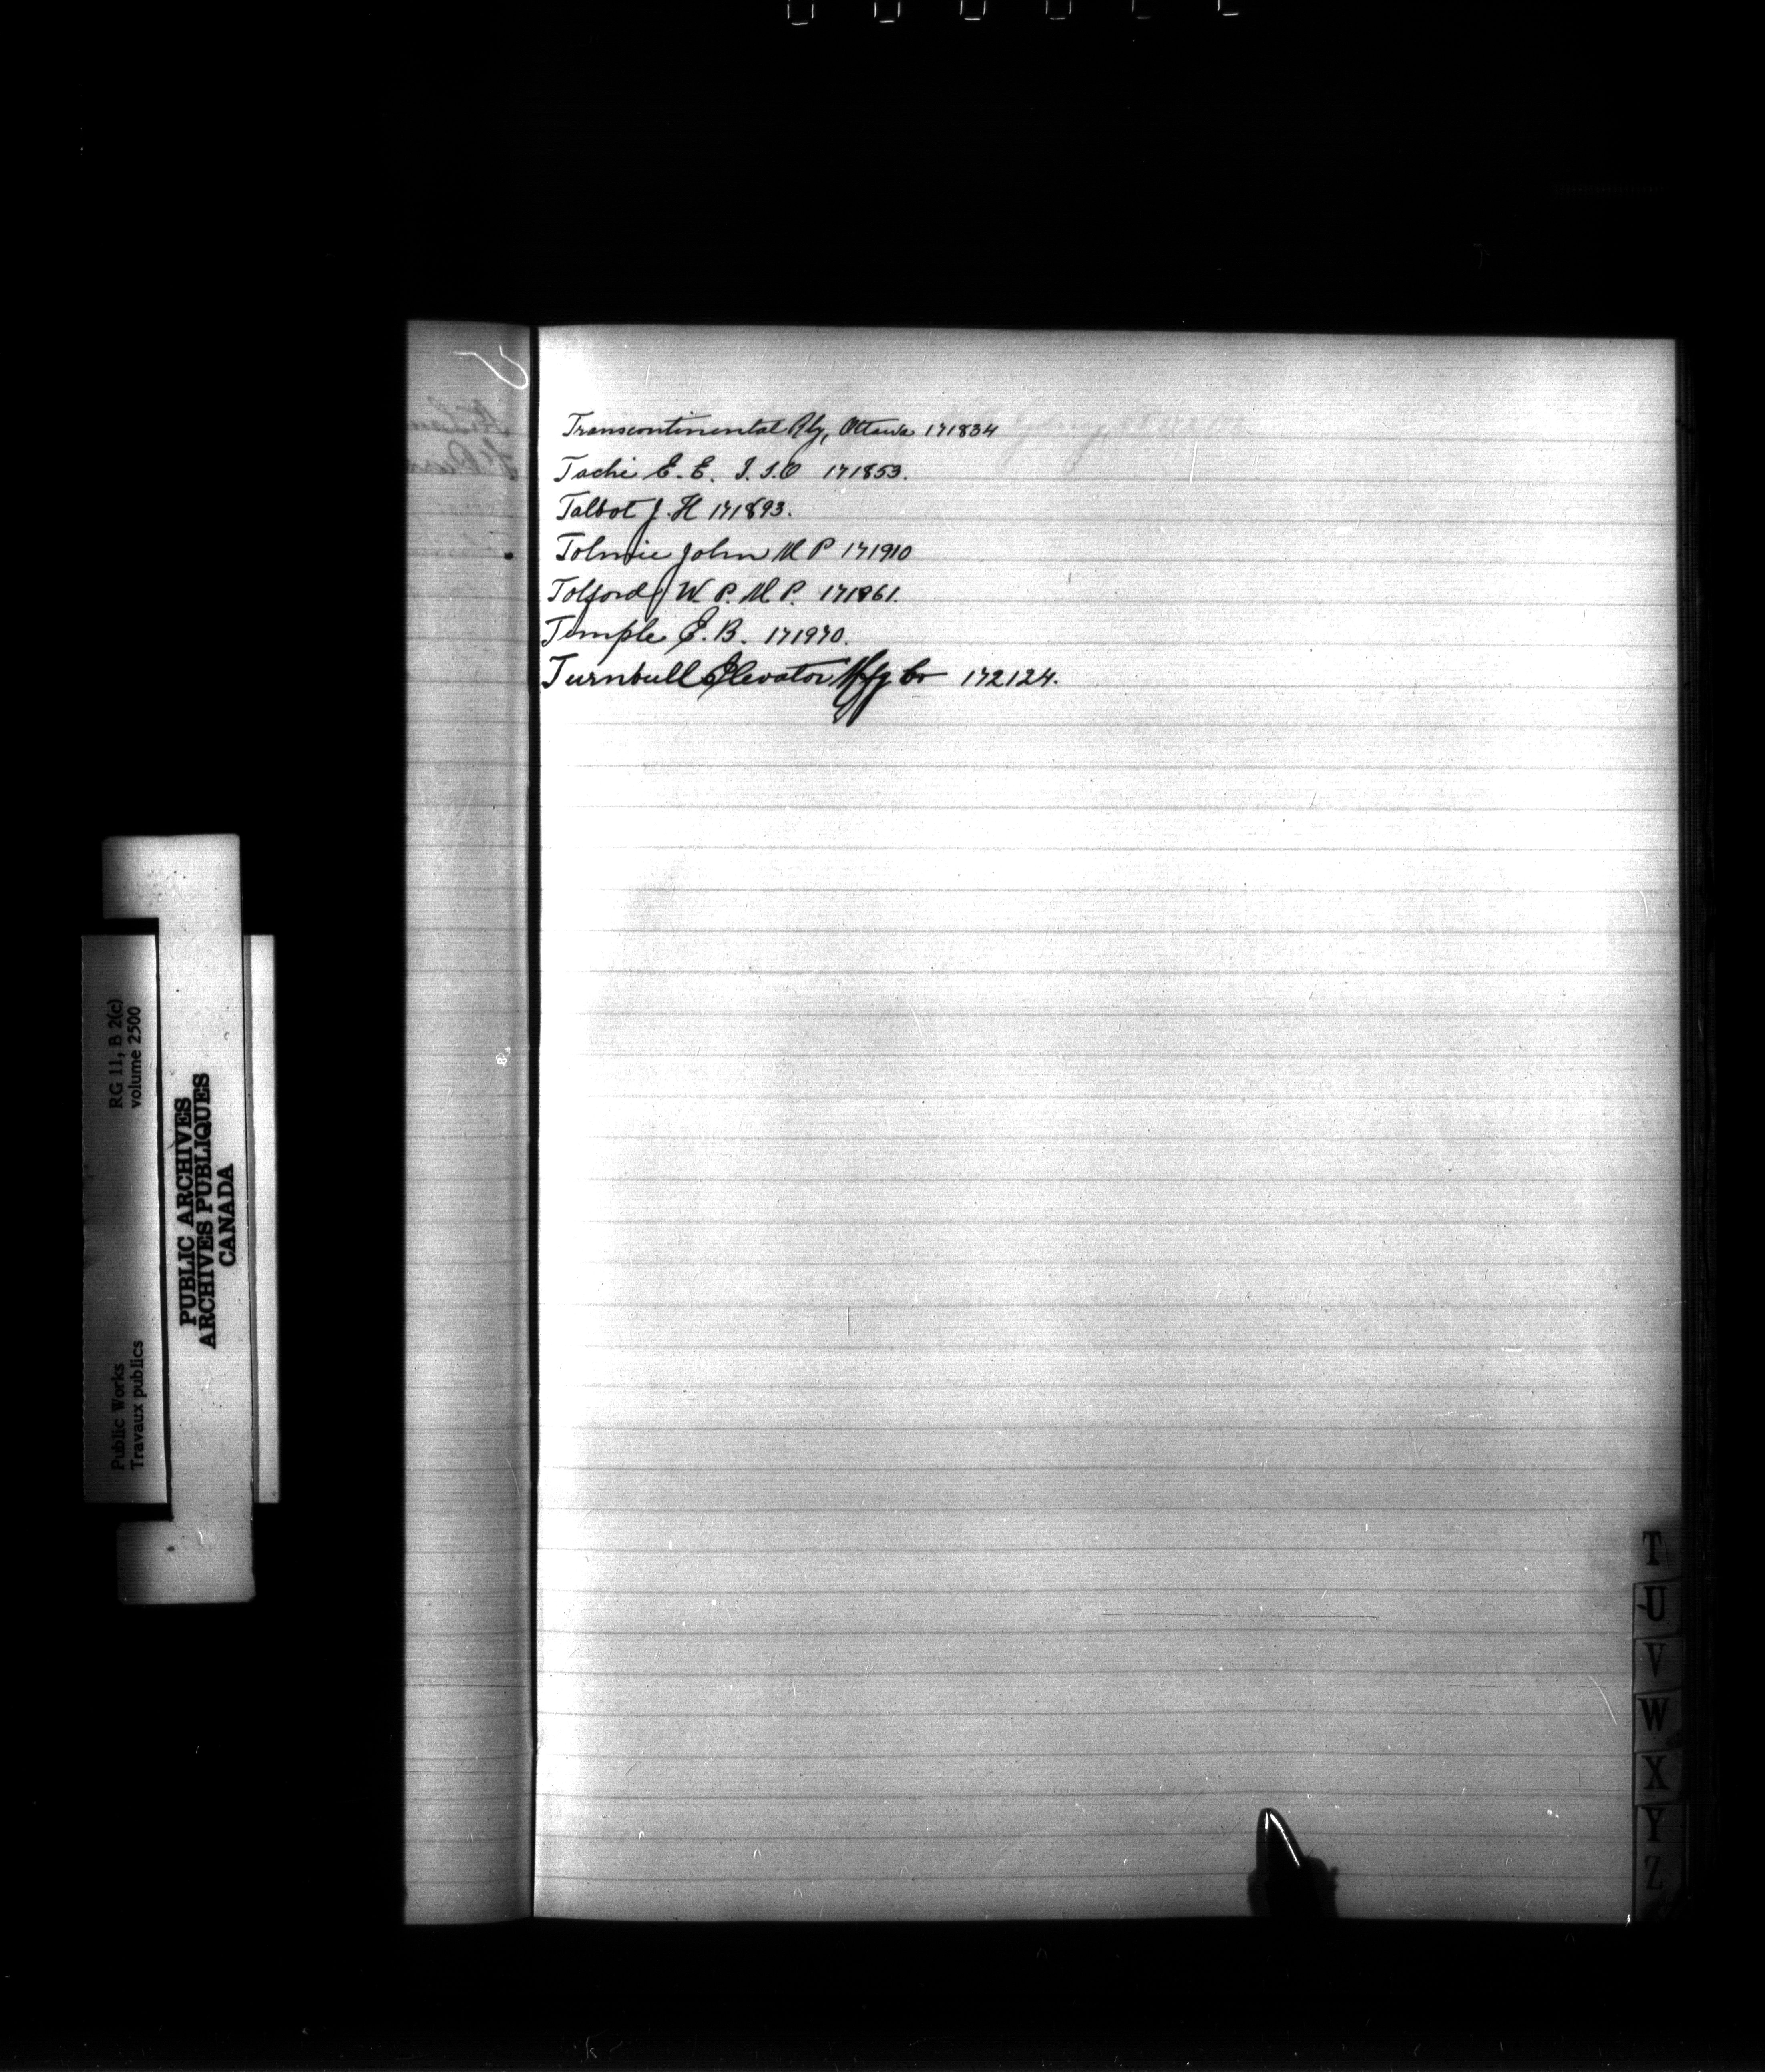 Transcontinental Rly, Ottawa 171834
Tache E. E. I.S.O 171853.
Talbot J. H 171893.
Tolmie John M P 171910
Tolford J W. P. M P. 171861.
Temple E. B. 171970.
Turnbull Elevator Mfg Co 172124.
RG 11, B 2(c)
volume 2500
PUBLIC ARCHIVES
ARCHIVES PUBLIQUES
CANADA
Public Works
Travaux publics
T
U
V
W
X
Y
Z